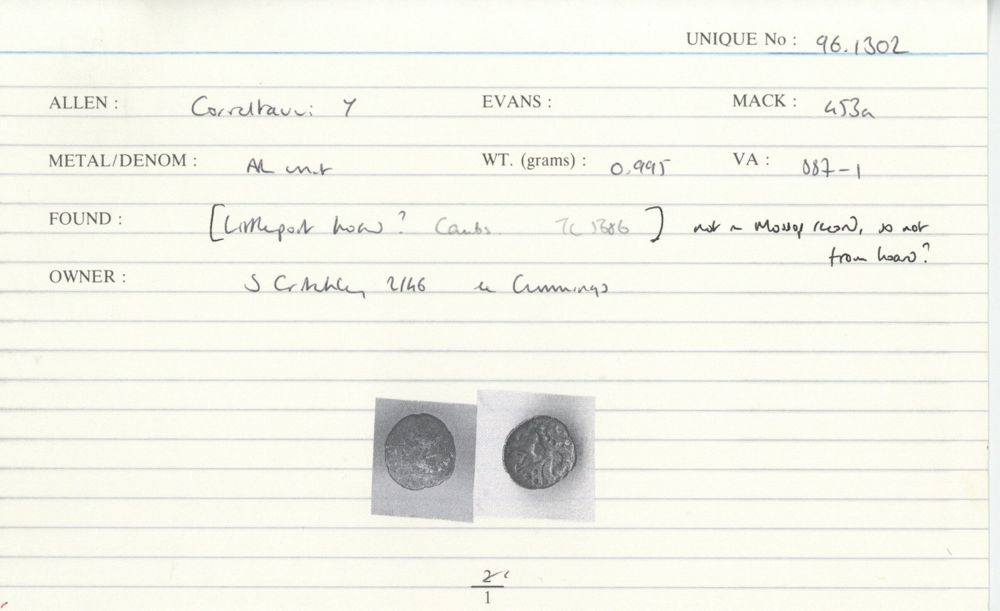 UNIQUE No : 96.1302
ALLEN : Correltauvi Y EVANS : MACK : 453a
METAL/DENOM : AR unit WT. (grams) : 0.995 VA : 887-1
FOUND : [Littleport hoard? Cambs. Tc 1386] not in Mossop record, so not
from hoard?
OWNER : S Critchley 2/46 ex Cummings
2
1